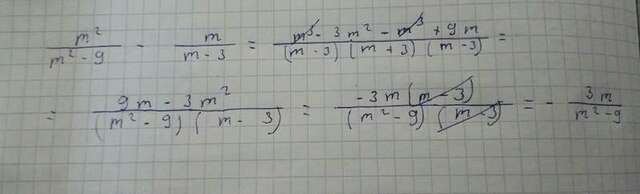 m²/(m² - 9) - m/(m - 3) = (m³ - 3m² - m³ + 9m)/((m - 3)(m + 3)(m - 3)) =
= (9m - 3m²)/((m² - 9)(m - 3)) = (-3m(m - 3))/((m² - 9)(m - 3)) = - 3m/(m² - 9)